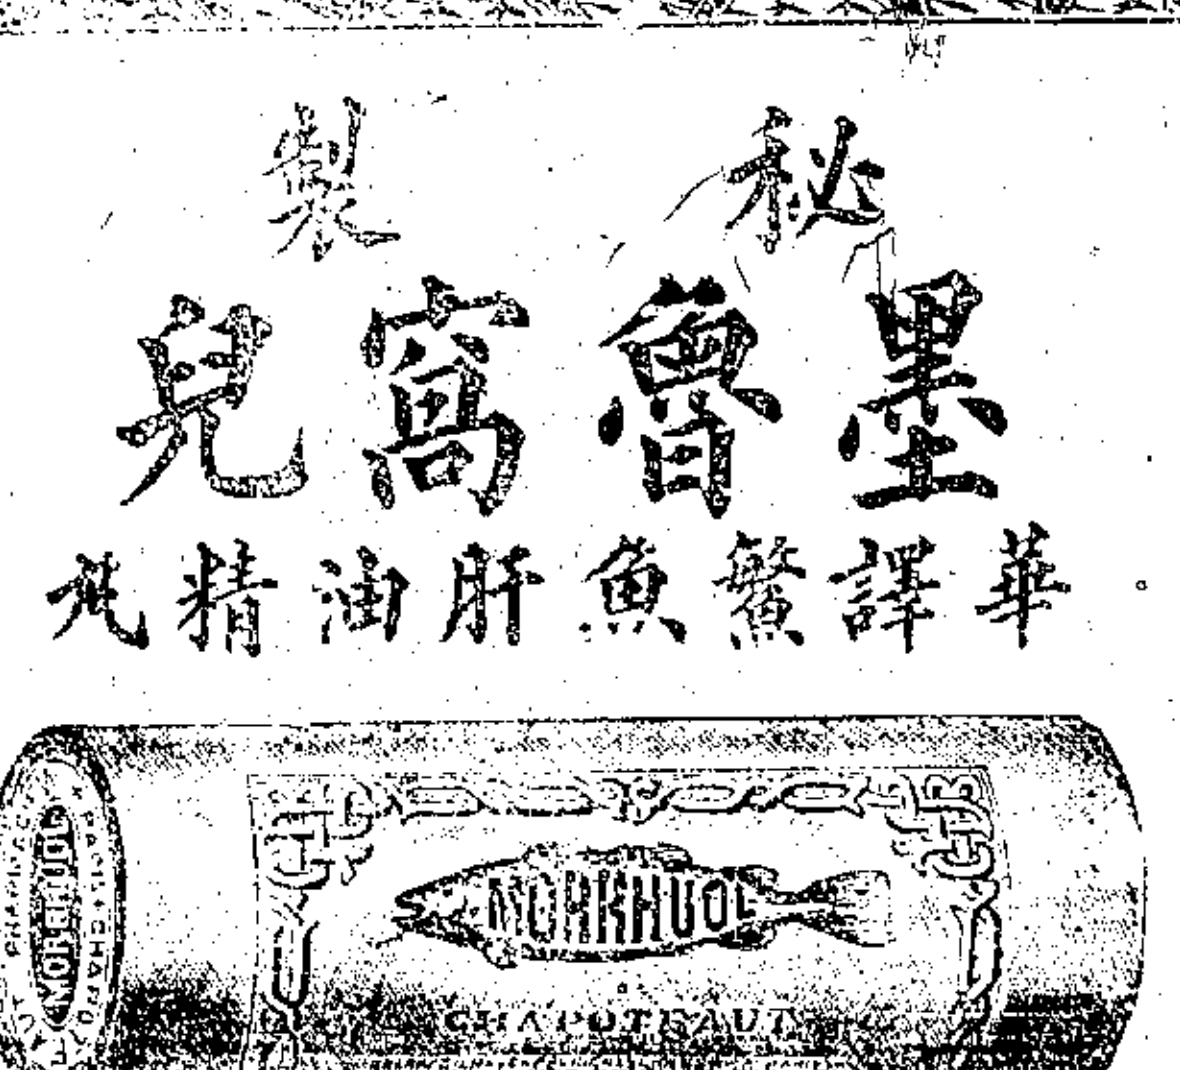 秘製
墨魯窩兒
華譯鰵魚肝油精丸
MORRHUOL
CHAPOTEAUT
MORRHUOL